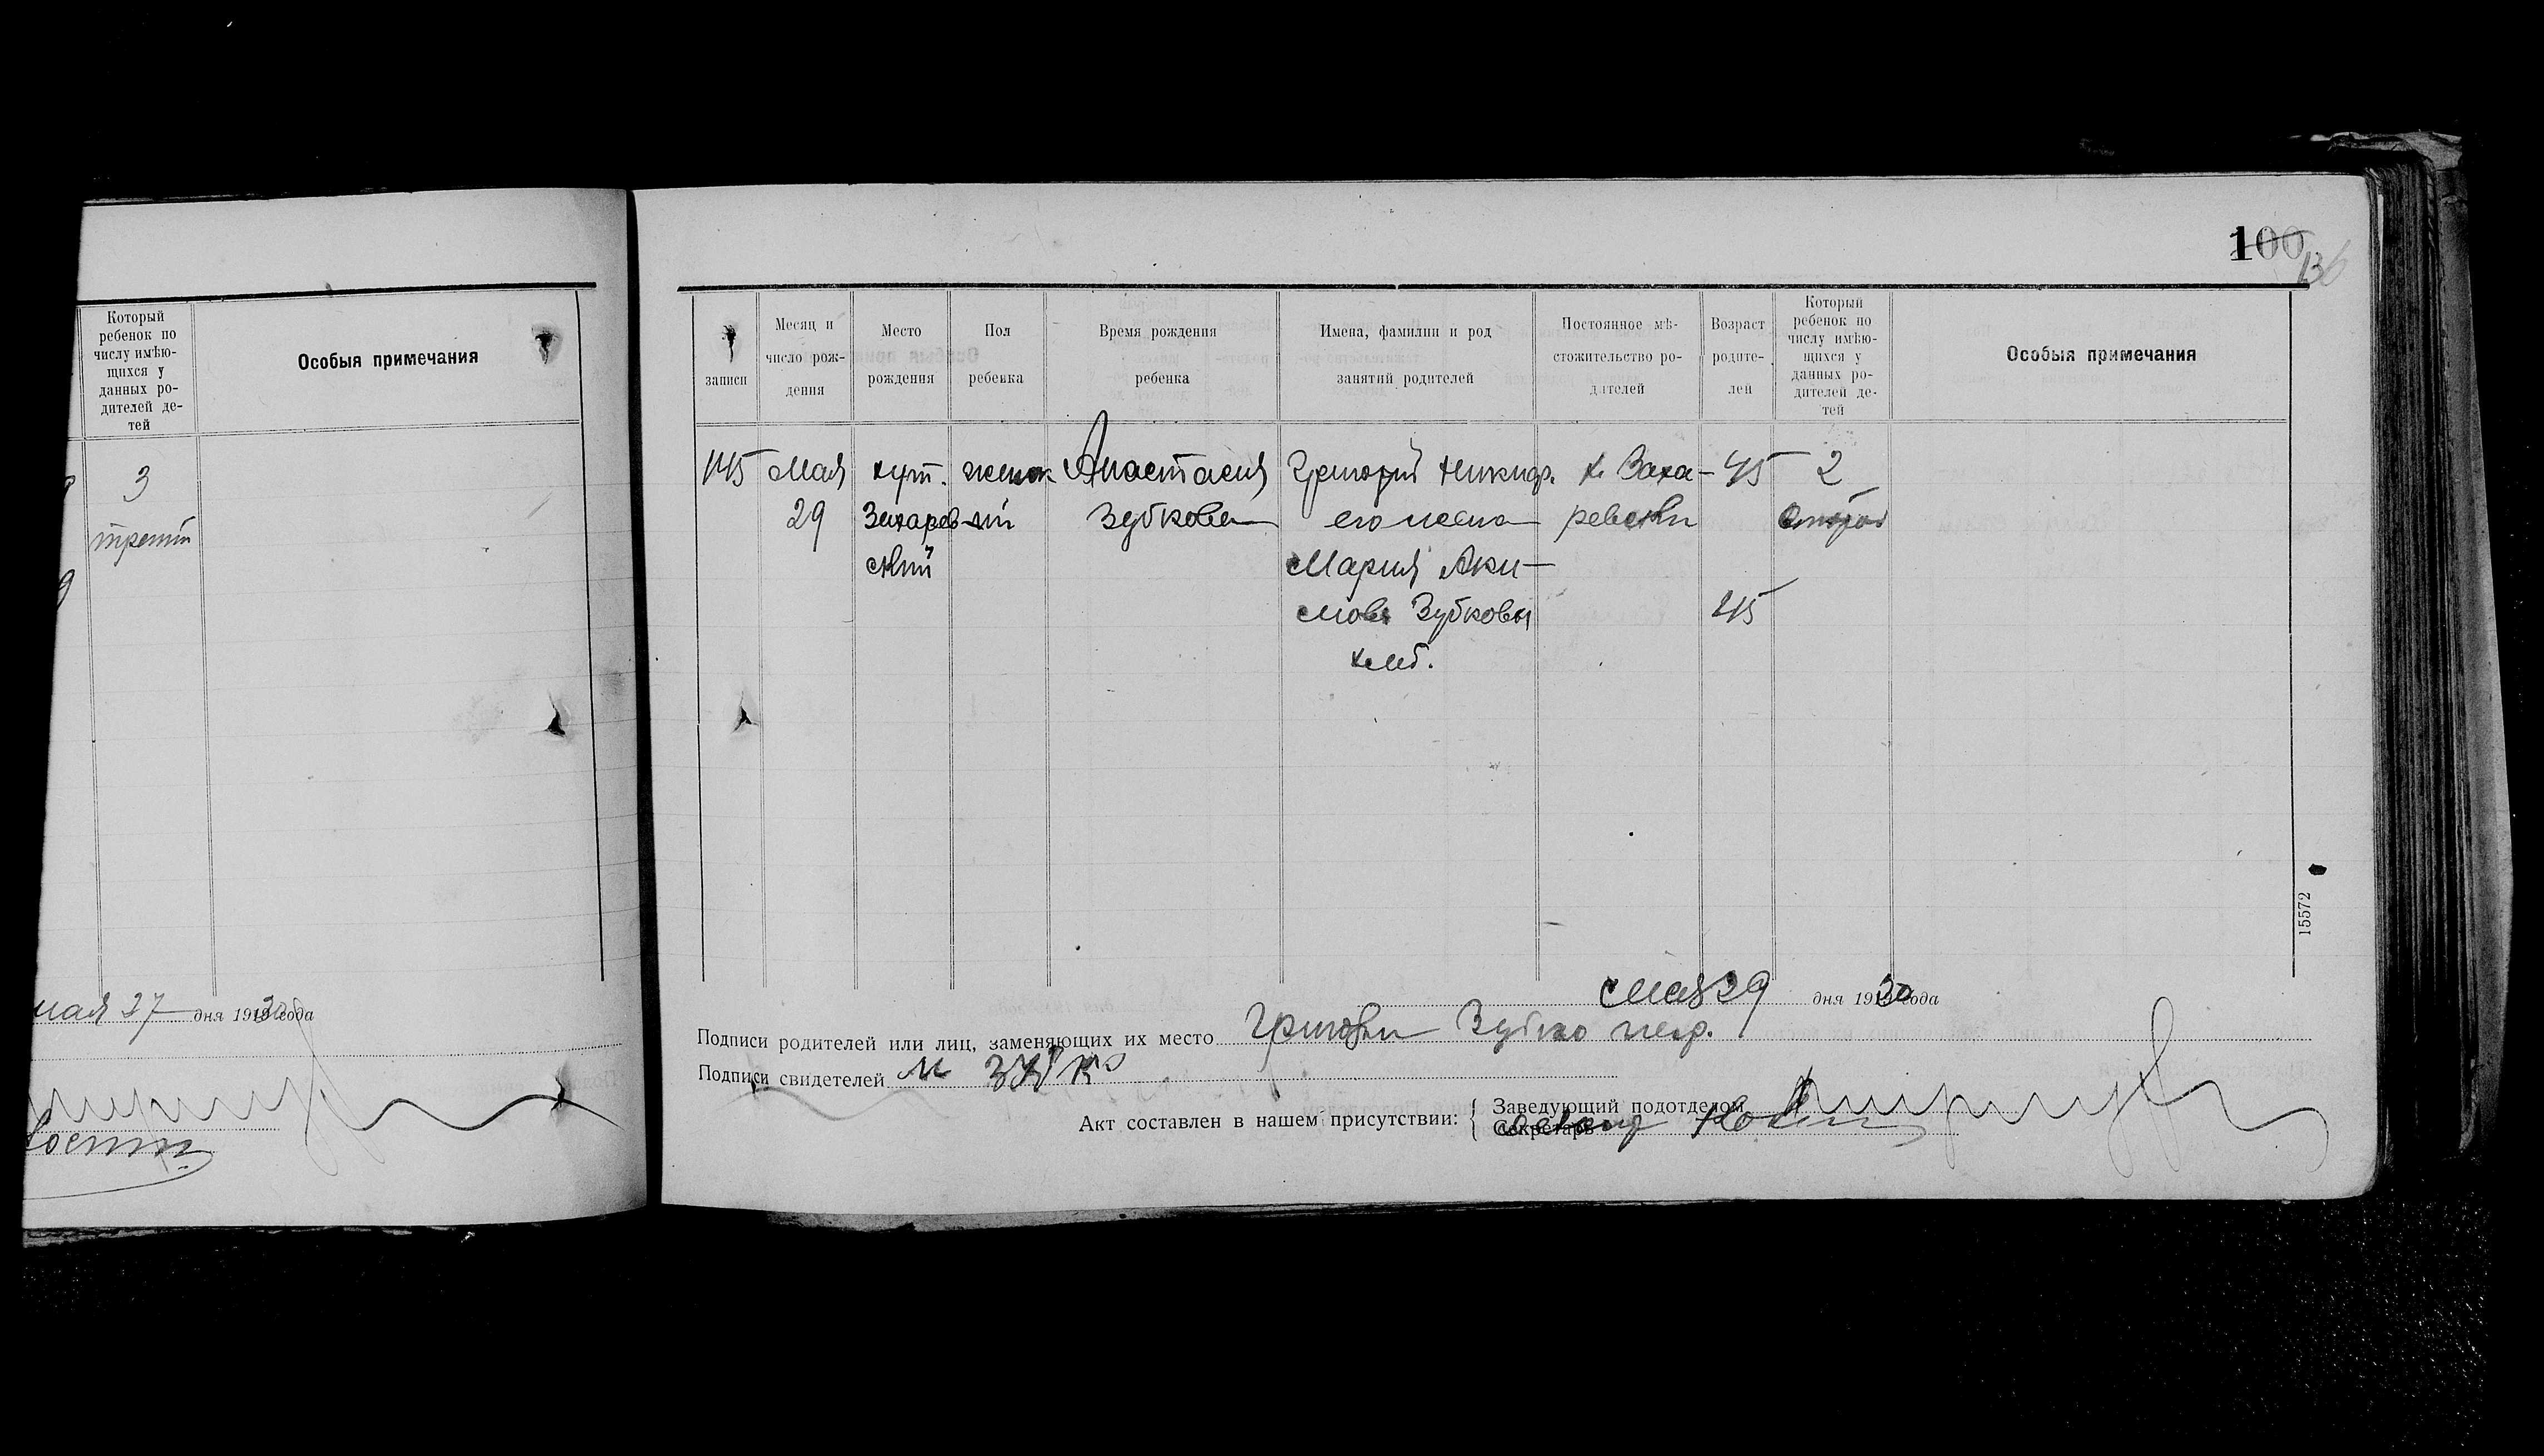 Который
ребенок по
числу имѣю-
щихся у
данных ро-
дителей де-
тей
Особыя примечания
3
третий
мая 27 дня 1920 года
100
136
записи
Месяц и
число рож-
дения
Место
рождения
Пол
ребенка
Время рождения
ребенка
Имена, фамилии и род
занятий родителей
Постоянное мѣ-
стожительство ро-
дителей
Возраст
родите-
лей
Который
ребенок по
числу имѣю-
щихся у
данных ро-
дителей де-
тей
Особыя примечания
145
Мая
29
хут.
Захарев-
ский
женск-
ий
Анастасия
Зубкова
Григорий Никиф.
его жена
Мария Аки-
мова Зубковы
хлеб.
х. Заха-
ревский
45
45
2
второй
15572
Мая 29 дня 1920 года
Подписи родителей или лиц, заменяющих их место
Подписи свидетелей
Акт составлен в нашем присутствии:
Заведующий подотделом
Секретарь